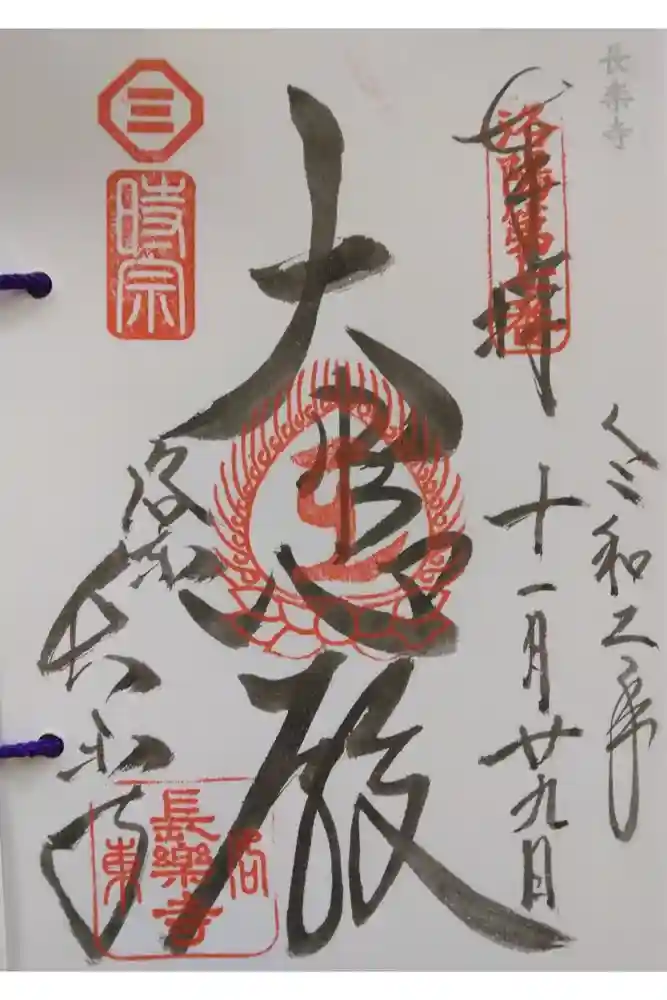 長楽寺
奉拝
洛陽第七番
令和五年
十一月廿九日
大悲殿
三
時宗
洛東
長楽寺
洛東
長樂寺